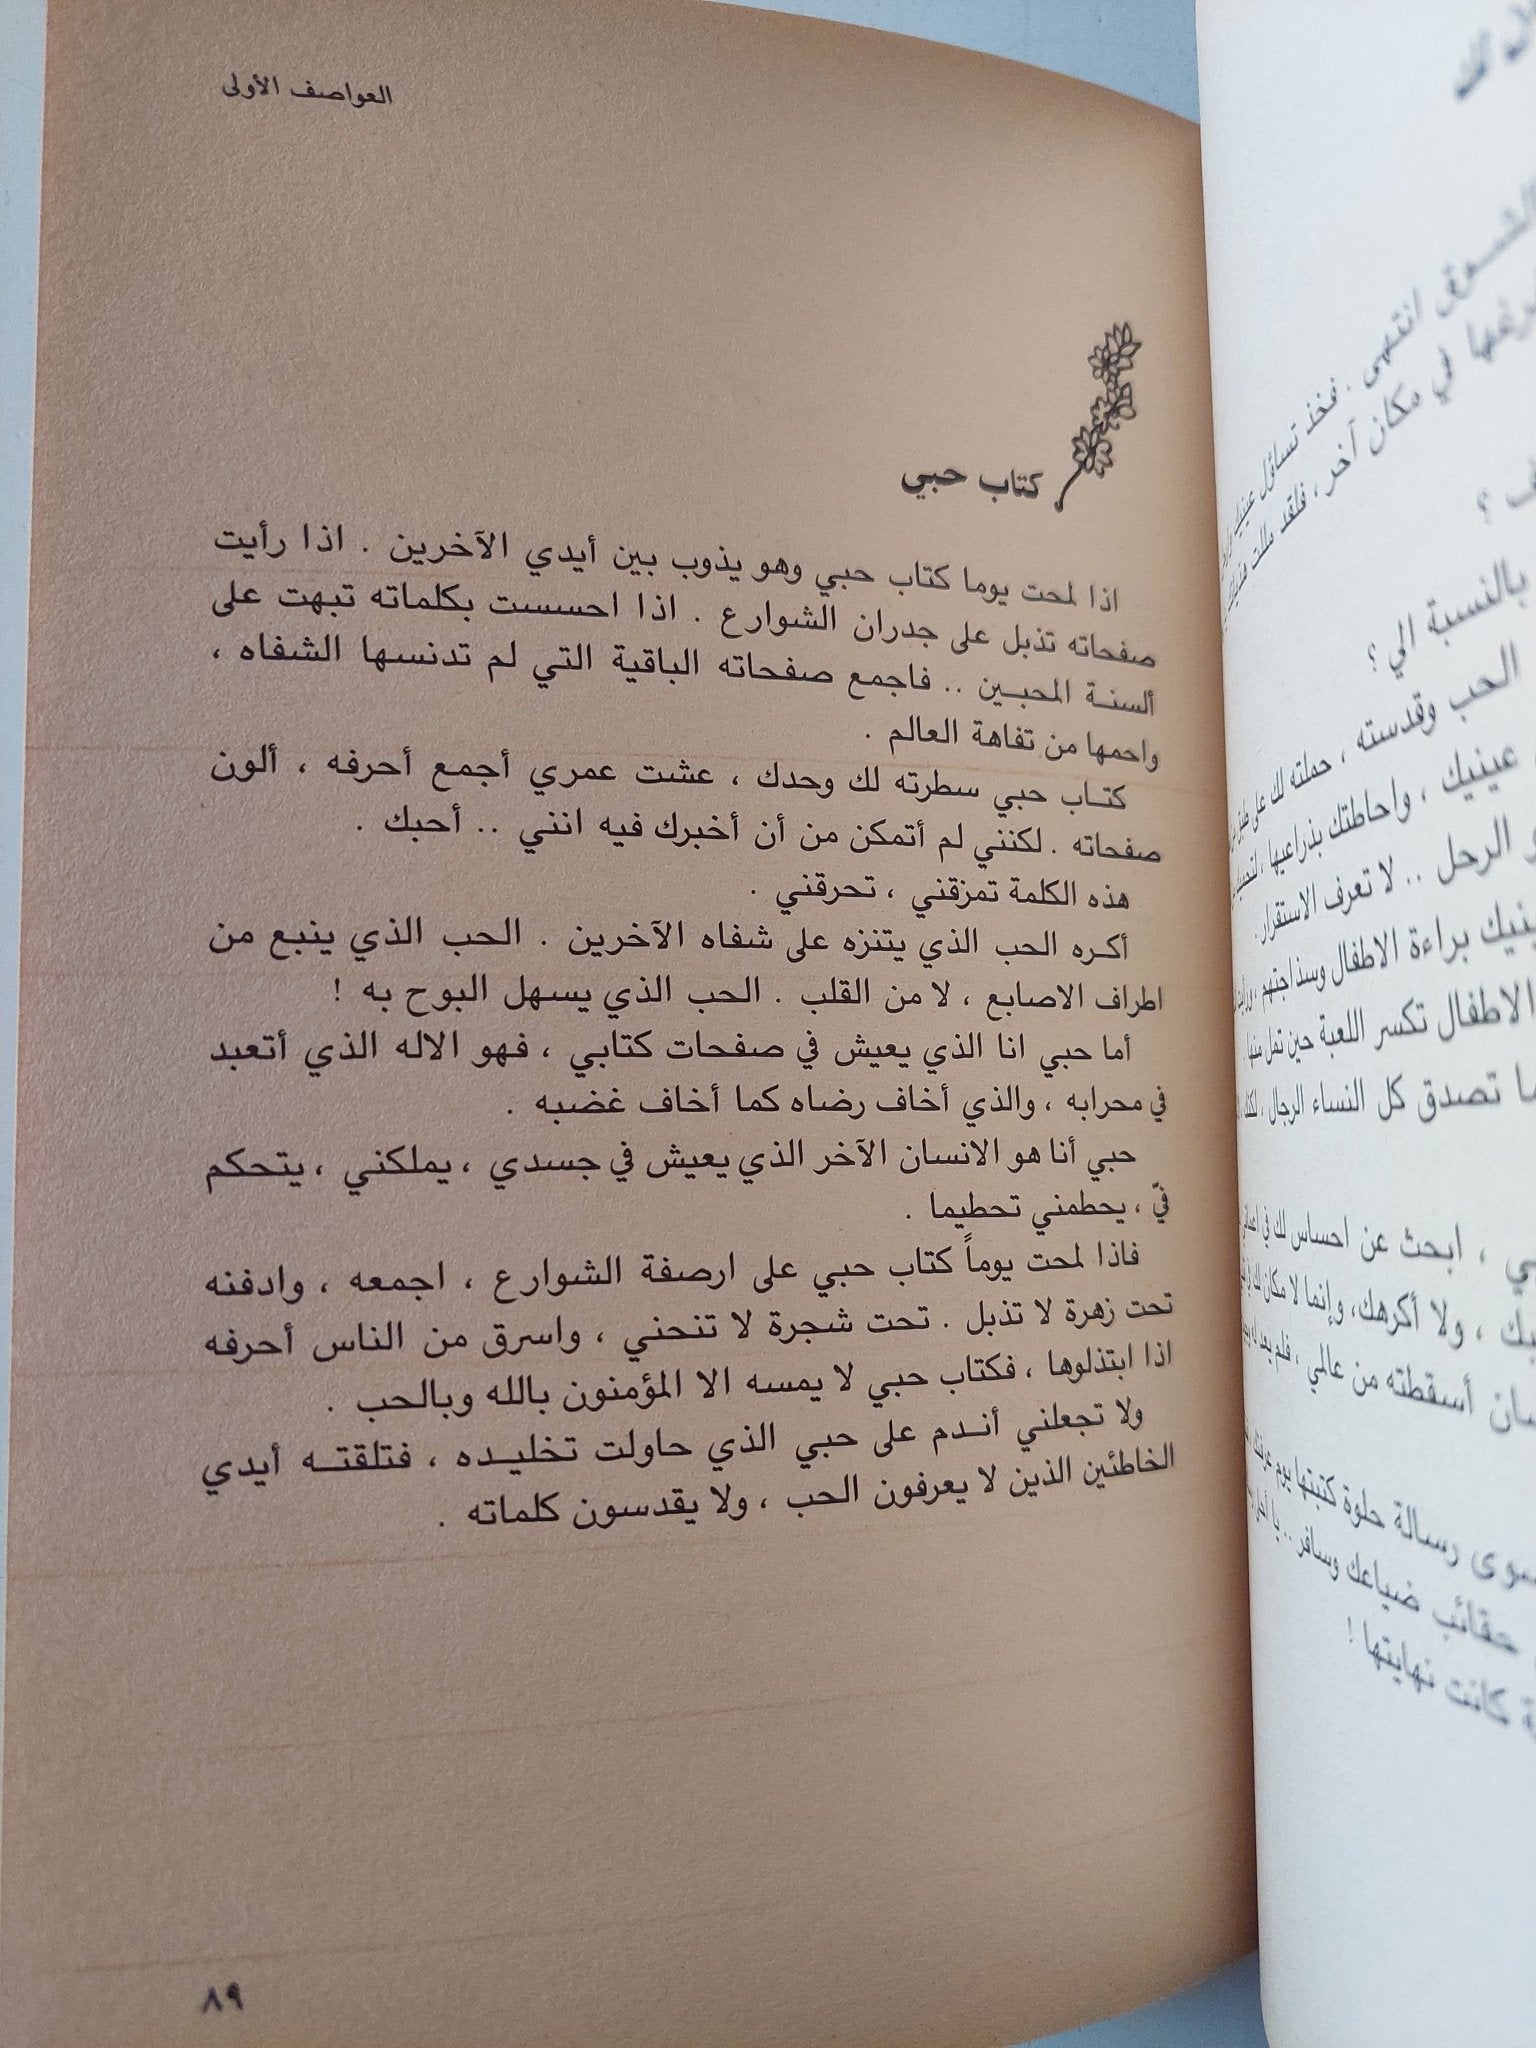 العواصف الأولى
كتاب حبي
اذا لمحت يوما كتاب حبي وهو يذوب بين أيدي الآخرين . اذا رأيت
صفحاته تذبل على جدران الشوارع . اذا احسست بكلماته تبهت على
ألسنة المحبين .. فاجمع صفحاته الباقية التي لم تدنسها الشفاه ،
واحمها من تفاهة العالم .
كتاب حبي سطرته لك وحدك ، عشت عمري أجمع أحرفه ، ألون
صفحاته . لكنني لم أتمكن من أن أخبرك فيه انني .. أحبك .
هذه الكلمة تمزقني ، تحرقني .
أكره الحب الذي يتنزه على شفاه الآخرين . الحب الذي ينبع من
اطراف الاصابع ، لا من القلب . الحب الذي يسهل البوح به !
أما حبي انا الذي يعيش في صفحات كتابي ، فهو الاله الذي أتعبد
في محرابه ، والذي أخاف رضاه كما أخاف غضبه .
حبي أنا هو الانسان الآخر الذي يعيش في جسدي ، يملكني ، يتحكم
فيّ ، يحطمني تحطيما .
فاذا لمحت يوماً كتاب حبي على ارصفة الشوارع ، اجمعه ، وادفنه
تحت زهرة لا تذبل . تحت شجرة لا تنحني ، واسرق من الناس أحرفه
اذا ابتذلوها ، فكتاب حبي لا يمسه الا المؤمنون بالله وبالحب .
ولا تجعلني أندم على حبي الذي حاولت تخليده ، فتلقته أيدي
الخاطئين الذين لا يعرفون الحب ، ولا يقدسون كلماته .
٨٩
الشوق انتهى . فخذ تساؤل عينيك
في مكان آخر ، فلقد مللت
؟
بالنسبة الي ؟
الحب وقدسته ، حملته لك على طبق
عينيك ، واحاطتك بذراعيها ،
الرحل .. لا تعرف الاستقرار .
براءة الاطفال وسذاجتهم ،
الاطفال تكسر اللعبة حين تمل منها .
تصدق كل النساء الرجال ،
، ابحث عن احساس لك في
، ولا أكرهك ، وإنما لا مكان لك
أسقطته من عالمي ، فلم يعد
سوى رسالة حلوة كتبتها يوم
حقائب ضياعك وسافر .. يا
كانت نهايتها !